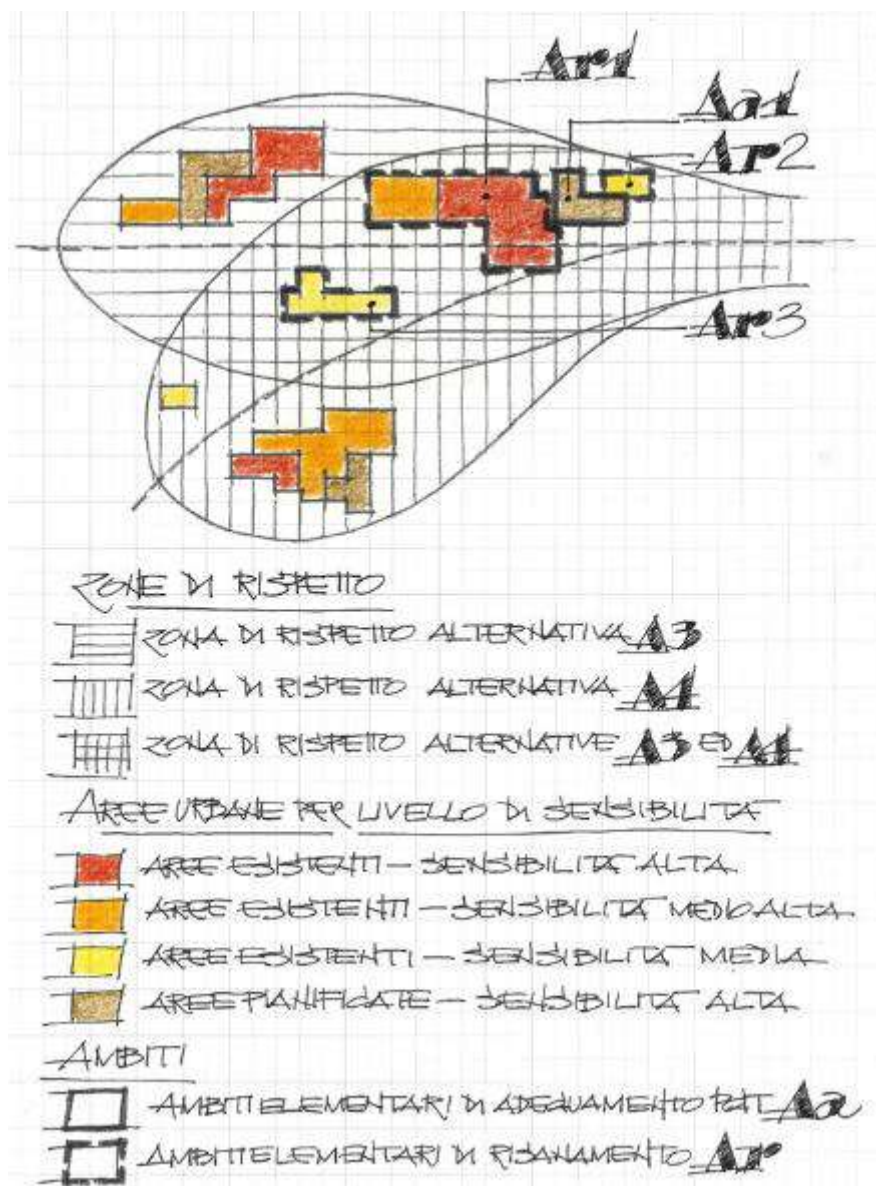 Ar1
Aa1
Ar2
Ar3
ZONE DI RISPETTO
ZONA DI RISPETTO ALTERNATIVA A3
ZONA DI RISPETTO ALTERNATIVA A4
ZONA DI RISPETTO ALTERNATIVE A3 ED A4
AREE URBANE PER LIVELLO DI SENSIBILITA'
AREE ESISTENTI - SENSIBILITA' ALTA
AREE ESISTENTI - SENSIBILITA' MEDIO ALTA
AREE ESISTENTI - SENSIBILITA' MEDIA
AREE PIANIFICATE - SENSIBILITA' ALTA
AMBITI
AMBITI ELEMENTARI DI ADEGUAMENTO Aa
AMBITI ELEMENTARI DI RISANAMENTO Ar